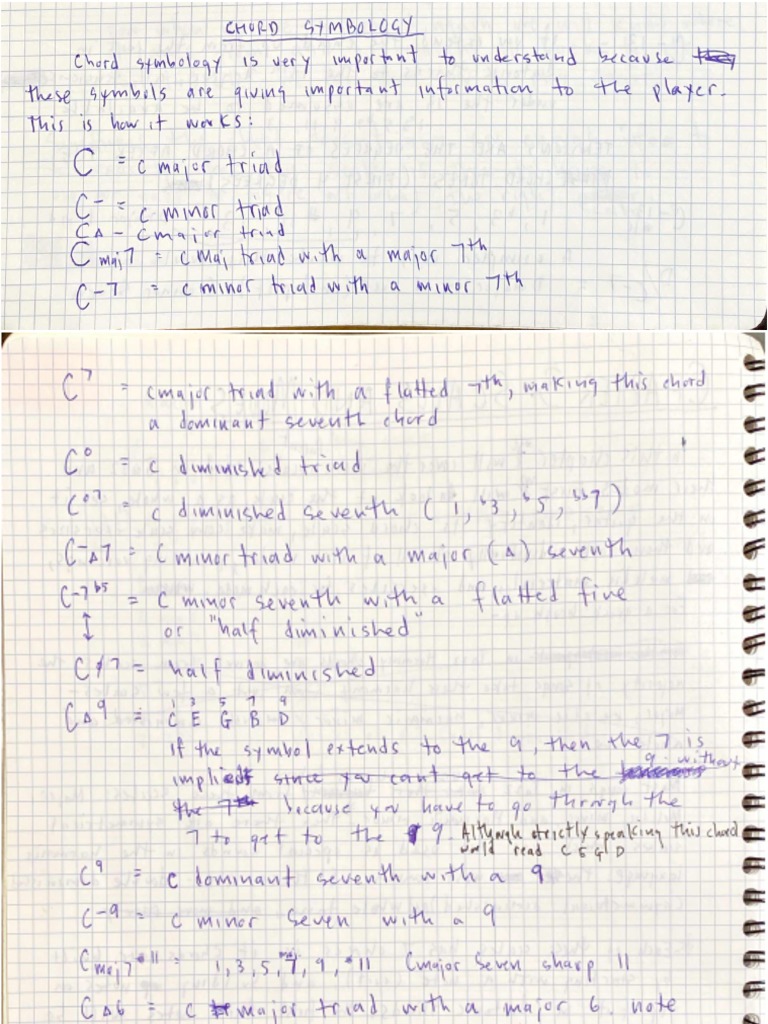 CHORD SYMBOLOGY
Chord symbology is very important to understand because they
these symbols are giving important information to the player.
This is how it works:
C = c major triad
C- = c minor triad
C∆ - C major triad
C maj7 = c maj triad with a major 7th
C-7 = c minor triad with a minor 7th
C7 = c major triad with a flatted 7th, making this chord
a dominant seventh chord
C° = c diminished triad
C°7 = c diminished seventh (1, b3, b5, bb7)
C-∆7 = C minor triad with a major (∆) seventh
C-7b5 = C minor seventh with a flatted five
↕ or "half diminished"
Cø7 = half diminished
1 3 5 7 9
C∆9 = C E G B D
If the symbol extends to the 9, then the 7 is
implied since you cant get to the 9 without
the 7th because you have to go through the
7 to get to the 9. Although strictly speaking this chord
would read C E G D
C9 = c dominant seventh with a 9
C-9 = c minor seven with a 9
Cmaj7#11 = 1, 3, 5, maj7, 9, #11 Cmajor seven sharp 11
C∆6 = c major triad with a major 6 note